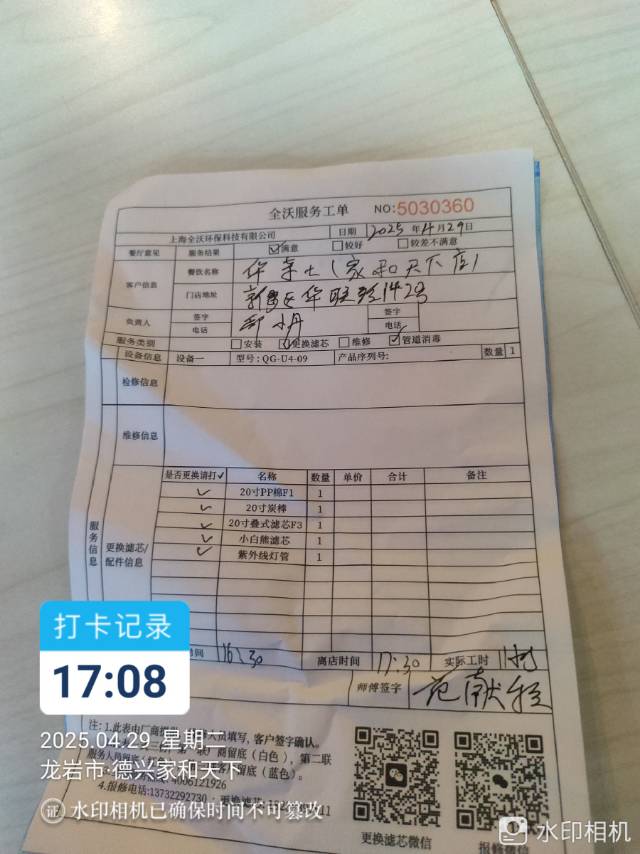 全沃服务工单 NO:5030360
上海全沃环保科技有限公司 日期 2025年4月29日
餐厅意见 服务结果 ☑满意 □较好 □较差不满意
客户信息 餐饮名称 华莱士(家和天下店)
门店地址 142号
负责人 签字 签字
电话 电话
服务类别 □安装 更换滤芯 □维修 ☑管道消毒
设备信息 设备一 型号:QG-U4-09 产品序列号: 数量 1
检修信息
维修信息
服务信息 更换滤芯/配件信息
是否更换请打✓ 名称 数量 单价 合计 备注
✓ 20寸PP棉F1 1
✓ 20寸炭棒 1
✓ 20寸叠式滤芯F3 1
✓ 小白熊滤芯 1
✓ 紫外线灯管 1
时间 16:30 离店时间 17:30 实际工时
师傅签字
打卡记录
17:08
注:1.此表由厂商 员填写,客户签字确认。
商留底(白色),第二联
服务人员留底 留底(蓝色)。
4006121926
4.报修电话:13732292230
2025.04.29 星期一
龙岩市·德兴家和天下
证 水印相机已确保时间不可篡改
更换滤芯微信 报修
水印相机
水印相机